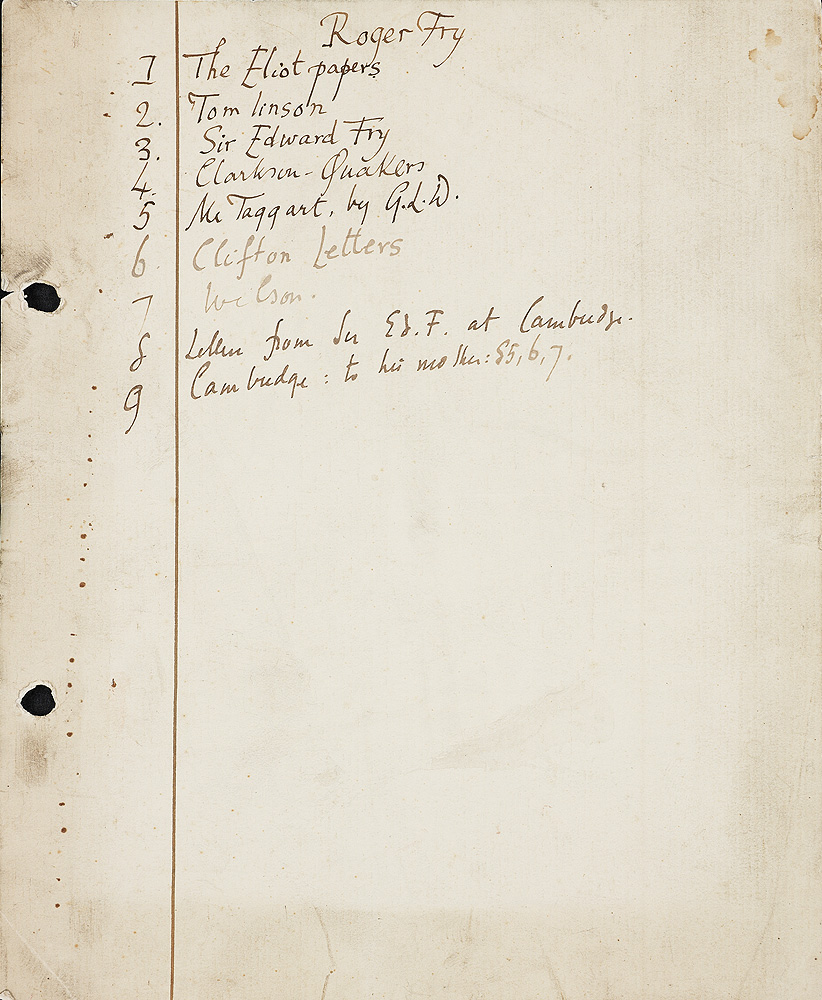 Roger Fry
1 The Eliot papers
2. Tomlinson
3. Sir Edward Fry
4. Clarkson - Quakers
5 McTaggart, by G.L.D.
6 Clifton Letters
7 Wilson.
8 Letters from Sir Ed. F. at Cambridge.
9 Cambridge : to his mother: 85, 6, 7.